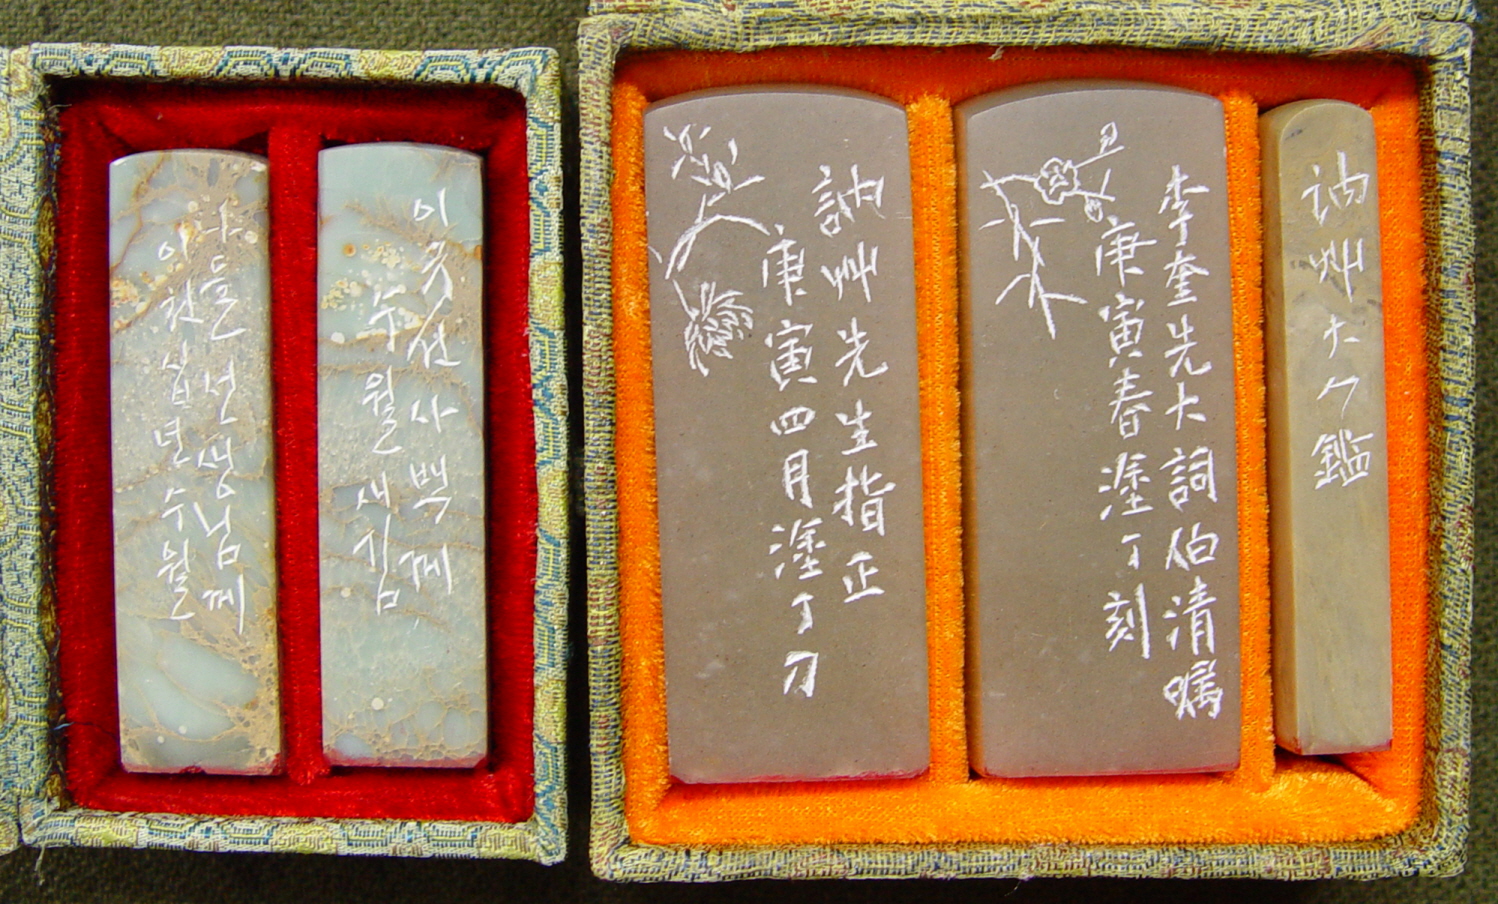 나들선생님께
이천십년수월
이규선사백께
수월새김
訥艸先生指正
庚寅四月塗丁刀
李奎先大詞伯清嘱
庚寅春塗丁刻
訥艸大人鑑